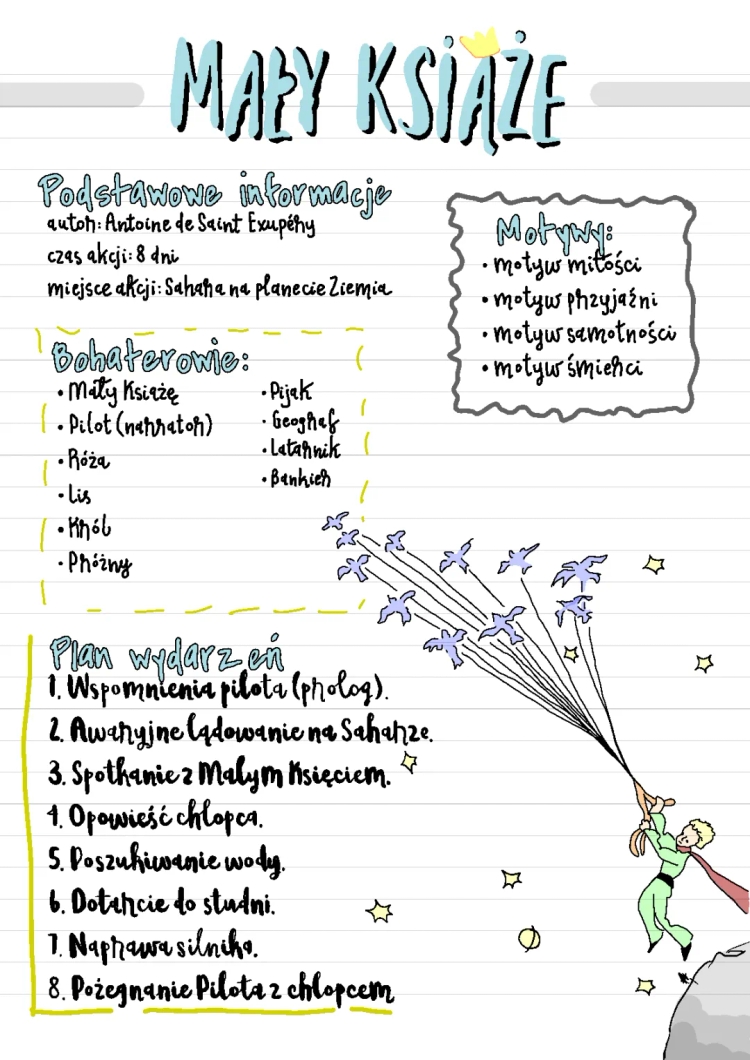 MAŁY KSIĄŻE
Podstawowe informacje
autor: Antoine de Saint Exupéry
czas akcji: 8 dni
miejsce akcji: Sahara na planecie Ziemia
Motywy:
• motyw miłości
• motyw przyjaźni
• motyw samotności
• motyw śmierci
Bohaterowie:
• Mały Książę
• Pilot (narrator)
• Róża
• Lis
• Król
• Próżny
• Pijak
• Geograf
• Latarnik
• Bankier
Plan wydarzeń
1. Wspomnienia pilota (prolog).
2. Awaryjne lądowanie na Saharze.
3. Spotkanie z Małym Księciem.
4. Opowieść chłopca.
5. Poszukiwanie wody.
6. Dotarcie do studni.
7. Naprawa silnika.
8. Pożegnanie Pilota z chłopcem